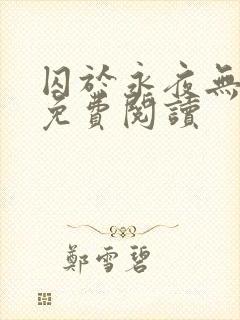 囚於永夜無
免費閱讀
鄭雪碧